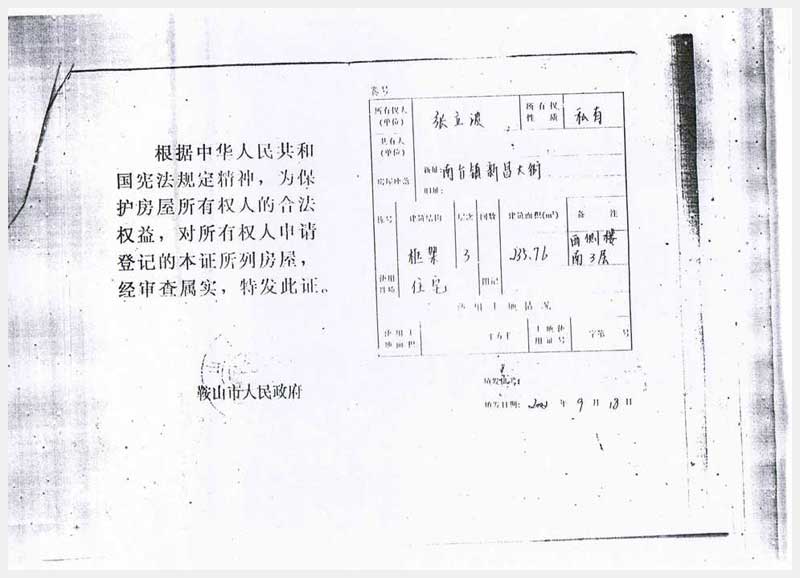 根据中华人民共和
国宪法规定精神，为保
护房屋所有权人的合法
权益，对所有权人申请
登记的本证所列房屋，
经审查属实，特发此证。
鞍山市人民政府
所有权人
(单位)
张立波
所有权
性质
私有
共有人
(单位)
房屋坐落
南台镇新昌大街
栋号 建筑结构 层次 间数 建筑面积(m²) 备注
框架 3 235.76 西侧楼
南3层
使用
性质
住宅
附记
使用土地情况
使用土
地面积
土地使
用证号
字第 号
填发日期: 年 9 月 18 日